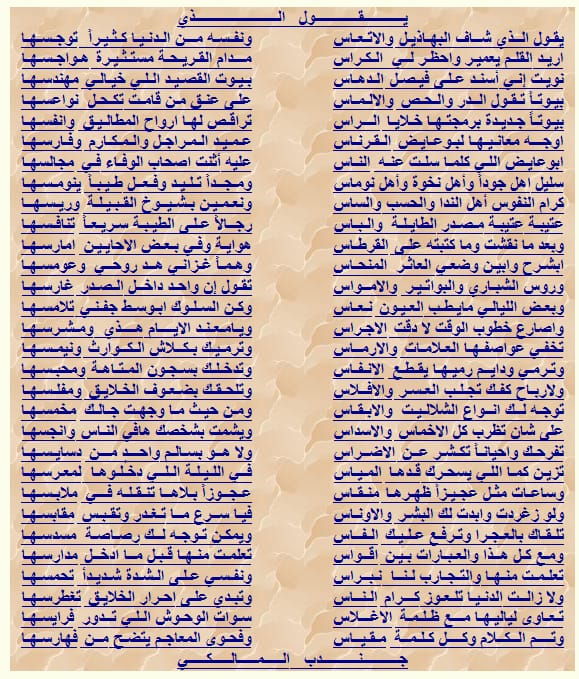 يقول الذي
يقول الذي شاف البهاذيل والاتعاس ونفسه من الدنيا كثيراً توجسها
اريد القلم يعمير واحظر لي الكراس مدام القريحة مستثيرة هواجسها
نويت إني أسند على فيصل الدهاس بيوت القصيد اللي خيالي مهندسها
بيوتاً تقول الدر والحص والالماس على عنق من قامت تكحل نواعسها
بيوتاً جديدة برمجتها خلايا الراس تراقص لها ارواح المطاليق وانفسها
اوجه معانيها لبوعايض القرناس عميد المراجل والمكارم وفارسها
ابوعايض اللي كلما سلت عنه الناس عليه أثنت اصحاب الوفاء في مجالسها
سليل اهل جوداً وأهل نخوة وأهل نوماس ومجداً تليد وفعل طيباً ينومسها
كرام النفوس أهل الندا والحسب والساس ونعمين بشيوخ القبيلة وريسها
عتيبة عتيبة مصدر الطايلة والباس رجالاً على الطيبة سريعاً تنافسها
وبعد ما نقشت وما كتبته على القرطاس هواية وفي بعض الاحايين امارسها
ابشرح وابين وضعي العاثر المنحاس وهماً غزاني هد روحي وعومسها
وروس الشباري والبواتير والامواس تقول إن واحد داخل الصدر غارسها
وبعض الليالي مايطب العيون نعاس وكن السلوك ابوسط جفني تلامسها
واصارع خطوب الوقت لا دقت الاجراس ويامعند الايام هذي ومشرسها
تخفي عواصفها العلامات والارماس وترميك بكلاش الكوارث ونيمسها
وترمي ودايم رميها يقطع الانفاس وتدخلك بسجون المتاهة ومحبسها
ولارباح كفك تجلب العسر والافلاس وتلحقك بضعوف الخلايق ومفلسها
توجه لك انواع الشلاليت والابقاس ومن حيث ما وجهت جالك مخمسها
على شان تظرب كل الاخماس والاسداس ويشمت بشخصك هافي الناس وانجسها
تفرحك واحياناً تكشر عن الاضراس ولا هو بسالم واحد من دسايسها
تزين كما اللي يسحرك قدها المياس في الليلة اللي دخلوها لمعرسها
وساعات مثل عجيزاً ظهرها منقاس عجوزاً بلاها تنقله في ملابسها
ولو زغردت وابدت لك البشر والاوناس فيا سرع ما تغدر وتقبس مقابسها
تلقاك بالعجرا وترفع عليك الفاس ويمكن توجه لك رصاصة مسدسها
ومع كل هذا والعبارات بين اقواس تعلمت منها قبل ما أدخل مدارسها
تعلمت منها والتجارب لنا نبراس ونفسي على الشدة شديداً تحمسها
ولا زالت الدنيا تلعوز كرام الناس وتبدي على احرار الخلايق تغطرسها
تعاوى لياليها مع ظلمة الاغلاس سوات الوحوش اللي تدور فرايسها
وتم الكلام وكل كلمة مقياس وفحوى المعاجم يتضح من فهارسها
جندب المالكي